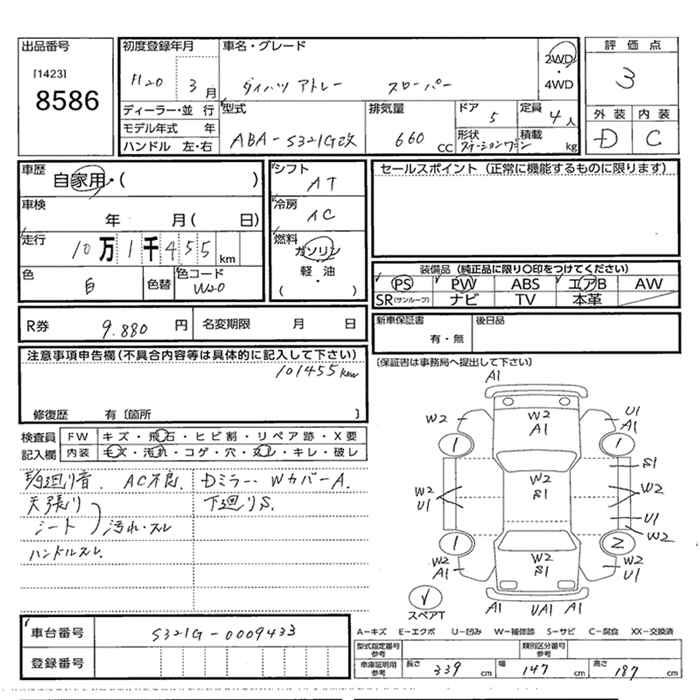 出品番号
[1423]
8586
初度登録年月
H20 3月
車名・グレード
ダイハツ アトレー スローパー
2WD
・
4WD
評価点
3
ディーラー・並 行
モデル年式 年
ハンドル 左・右
型式
ABA-S321G改
排気量
660 CC
ドア
5
定員
4人
形状
ステーションワゴン
積載
kg
外装 内装
D C
車歴
自家用・( )
車検
年 月( 日)
走行
10万1千455km
色
白
色替
色コード
W20
シフト
AT
冷房
AC
燃料
ガソリン
軽・油
( )
セールスポイント (正常に機能するものに限ります)
装備品 (純正品に限り○印をつけてください)
PS PW ABS エアB AW
SR(サンルーフ) ナビ TV 本革
R券 9.880 円 名変期限 月 日
新車保証書
有・無
後日品
注意事項申告欄(不具合内容等は具体的に記入して下さい)
101455km
修復歴 有〔箇所 〕
〔保証書は事務局へ提出して下さい〕
検査員 FW キズ・飛石・ヒビ割・リペア跡・X要
記入欄 内装 キズ・汚れ・コゲ・穴・スレ・キレ・破レ
AC不良. Dミラー. WカバーA.
天張り 下廻りS.
シート 汚れ・スレ
ハンドルスレ.
A1
W2 W2 U1
A1 A1
1 1
S1
W2 W2 W2
U1 S1
U1
W2
1 2
W2 W2 W2
A1 S1 U1
スペアT
A1 UA1 A1
車台番号 S321G-0009433
登録番号
A-キズ E-エクボ U-凹み W-補修跡 S-サビ C-腐食 XX-交換済
型式指定番号
参考
類別区分番号
参考
車庫証明用
参考
長さ 339 cm 幅 147 cm 高さ 187 cm